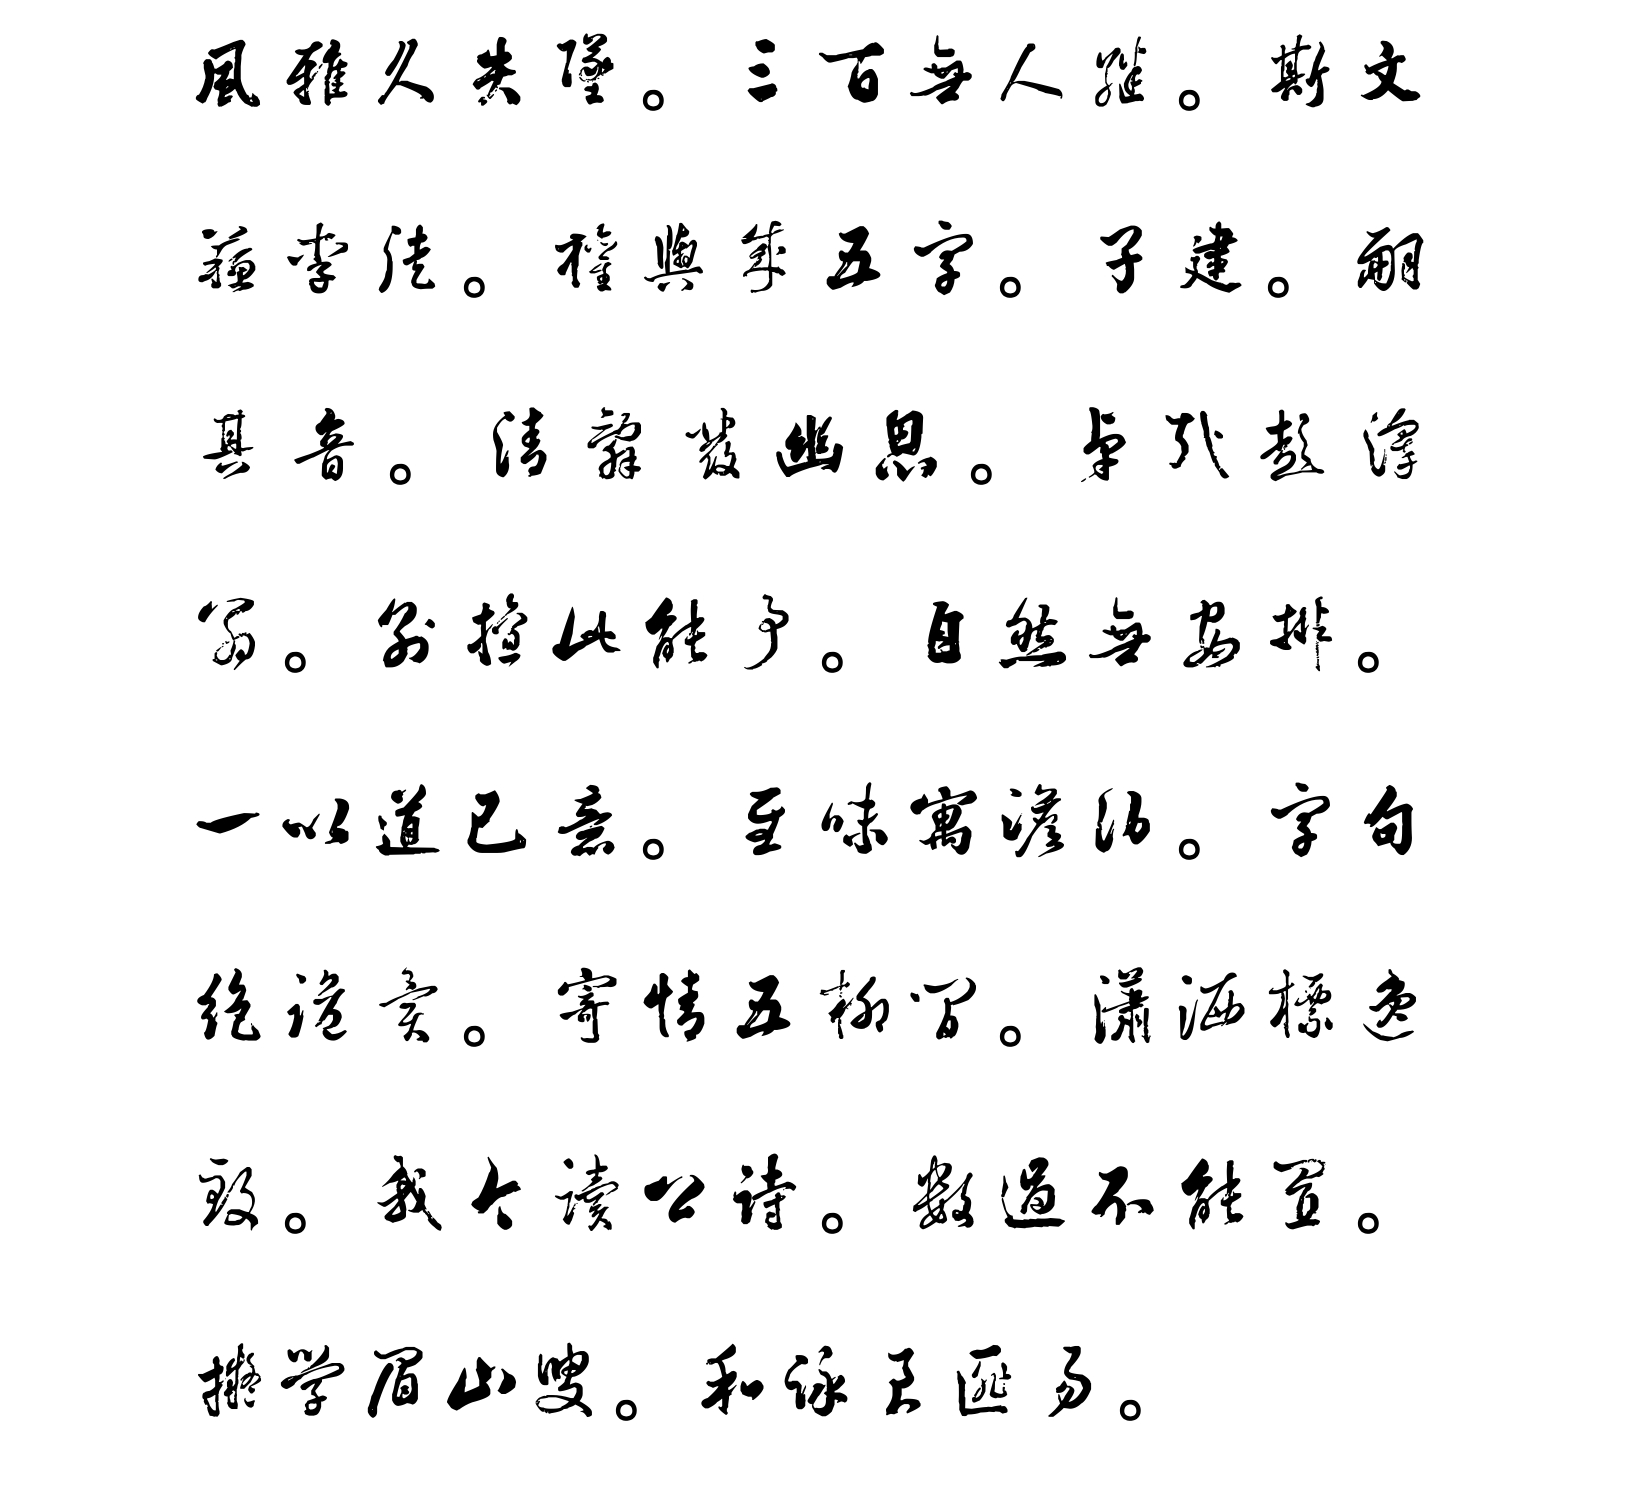 風雅久失墜。三百無人継。斯文
蘇李徒。權輿成五字。子建。嗣
其音。清辭發幽思。卓哉彭澤
翁。別擅此能事。自然無安排。
一以道己意。至味寓澹泊。字句
絶詭異。寄情五柳間。瀟洒標逸
致。我今讀公詩。數過不能置。
擬学眉山叟。和詠良匪易。